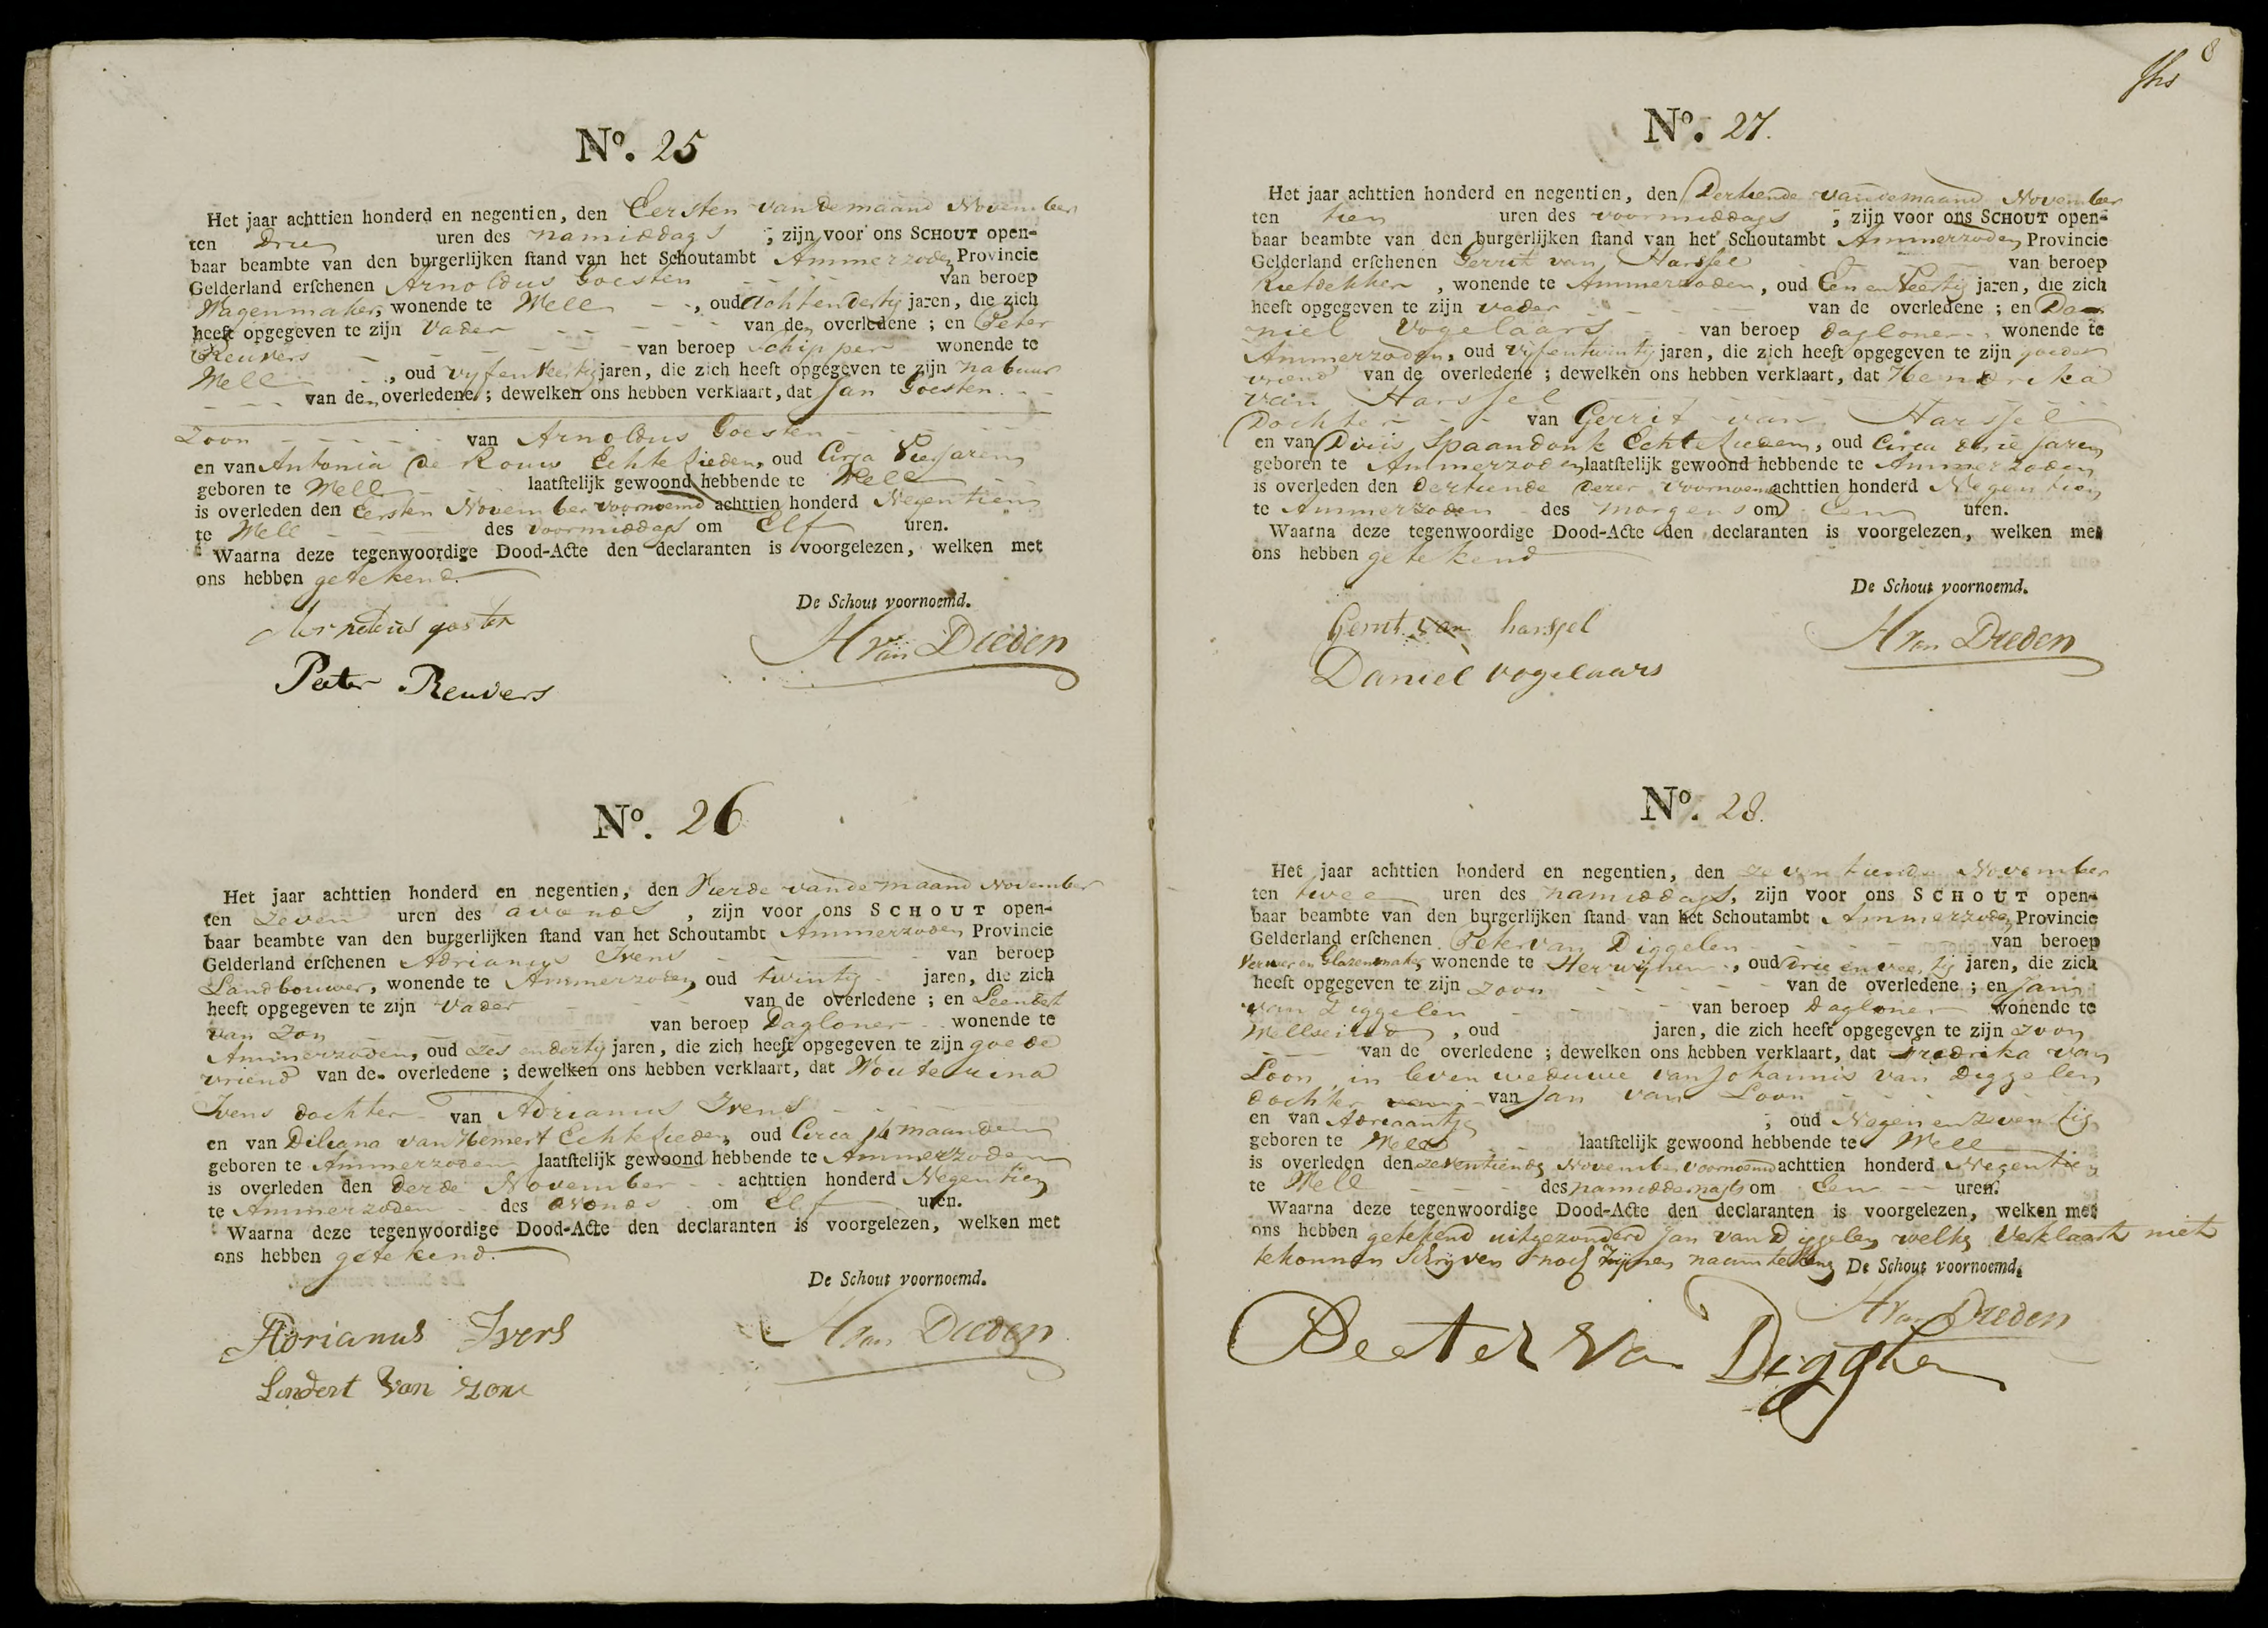 No. 25
Het jaar achttien honderd en negentien, den Eersten van de maand November
ten Drie uren des namiddags ; zijn voor ons SCHOUT open-
baar beambte van den burgerlijken stand van het Schoutambt Ammerzoden Provincie
Gelderland erschenen Arnoldus Goesten van beroep
Wagenmaker, wonende te Well, oud Achtendertig jaren, die zich
heeft opgegeven te zijn Vader van den overledene ; en Peter
Reuvers van beroep Schipper wonende te
Well, oud vyfenveertig jaren, die zich heeft opgegeven te zijn nabuur
van den overledene ; dewelken ons hebben verklaart, dat Jan Goesten
Zoon van Arnoldus Goesten
en van Antonia de Rouw Echtelieden, oud Circa Vier Jaren
geboren te Well laatstelijk gewoond hebbende te Well
is overleden den Eersten November voornoemd achttien honderd Negentien
te Well des voormiddags om Elf uren.
Waarna deze tegenwoordige Dood-Acte den declaranten is voorgelezen, welken met
ons hebben getekend.
De Schout voornoemd.
Arnoldus goosten
H van Dieden
Peeter Reuvers
No. 26
Het jaar achttien honderd en negentien, den Vierde van de maand November
ten Zeven uren des avonds, zijn voor ons SCHOUT open-
baar beambte van den burgerlijken stand van het Schoutambt Ammerzoden Provincie
Gelderland erschenen Adrianus Ivens van beroep
Landbouwer, wonende te Ammerzoden, oud twintig jaren, die zich
heeft opgegeven te zijn Vader van de overledene ; en Leendert
van Zon van beroep Dagloner wonende te
Ammerzoden, oud Zes endertig jaren, die zich heeft opgegeven te zijn goede
vriend van de overledene ; dewelken ons hebben verklaart, dat Wouterina
Ivens dochter van Adrianus Ivens
en van Diliana van Hemert Echtelieden, oud Circa maanden
geboren te Ammerzoden laatstelijk gewoond hebbende te Ammerzoden
is overleden den derde November achttien honderd Negentien
te Ammerzoden des avonds om Elf uren.
Waarna deze tegenwoordige Dood-Acte den declaranten is voorgelezen, welken met
ons hebben getekend.
De Schout voornoemd.
Adrianus Ivers
H van Dieden
Lendert van zon
8
No. 27.
Het jaar achttien honderd en negentien, den Dertiende van de maand November
ten tien uren des voormiddags ; zijn voor ons SCHOUT open-
baar beambte van den burgerlijken stand van het Schoutambt Ammerzoden Provincie
Gelderland erschenen Gerrit van Harssel van beroep
Rietdekker, wonende te Ammerzoden, oud Een en Veertig jaren, die zich
heeft opgegeven te zijn vader van de overledene ; en Da-
niel Vogelaars van beroep dagloner wonende te
Ammerzoden, oud Vyfentwintig jaren, die zich heeft opgegeven te zijn goeder
vriend van de overledene ; dewelken ons hebben verklaart, dat Hendrika
van Harssel
Dochter van Gerrit van Harssel
en van Diris Spaandonk Echtelieden, oud Circa drie jaren
geboren te Ammerzoden laatstelijk gewoond hebbende te Ammerzoden
is overleden den dertiende dezer voornoemd achttien honderd Negentien
te Ammerzoden des morgens om Een uren.
Waarna deze tegenwoordige Dood-Acte den declaranten is voorgelezen, welken met
ons hebben getekend
De Schout voornoemd.
Gerrit van harssel
H van Dieden
Daniel vogelaars
No. 28.
Het jaar achttien honderd en negentien, den zeventiende November
ten twee uren des namiddags, zijn voor ons SCHOUT open-
baar beambte van den burgerlijken stand van het Schoutambt Ammerzoden Provincie
Gelderland erschenen Peter van Diggelen van beroep
Verwer en Glazenmaker, wonende te Herwynen, oud drie en veertig jaren, die zich
heeft opgegeven te zijn zoon van de overledene ; en Jan
van Diggelen van beroep Dagloner wonende te
Wellseind, oud jaren, die zich heeft opgegeven te zijn zoon
van de overledene ; dewelken ons hebben verklaart, dat Fredrika van
Loon in leven weduwe van Johannis van Diggelen
dochter van Jan van Loon
en van Adriaantje ; oud Negen en zeventig
geboren te Well laatstelijk gewoond hebbende te Well
is overleden den zeventiende November voornoemd achttien honderd Negentien
te Well des namiddernagts om Een uren.
Waarna deze tegenwoordige Dood-Acte den declaranten is voorgelezen, welken met
ons hebben getekend uitgezonderd Jan van Diggelen welke Verklaart niet
te konnen Schryven noch Zynen naam te
De Schout voornoemd.
H van Dieden
Peeter van Diggelen